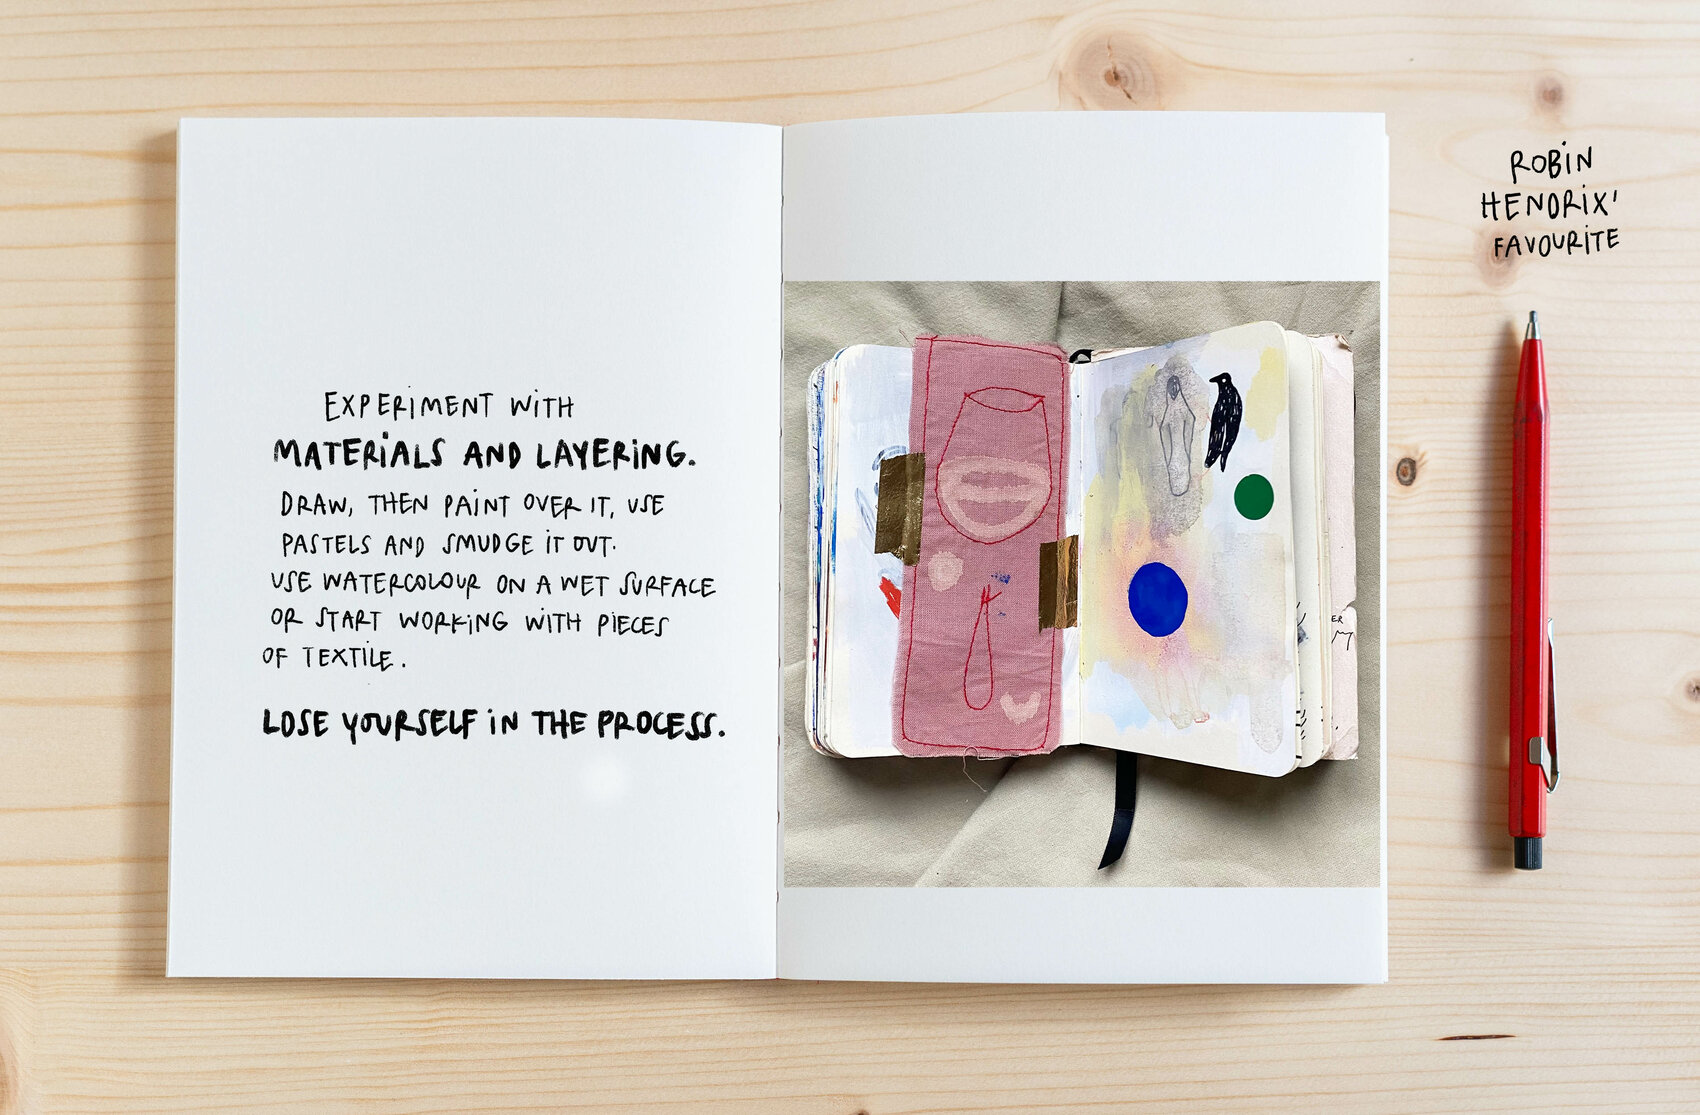 EXPERIMENT WITH
MATERIALS AND LAYERING.
DRAW, THEN PAINT OVER IT, USE
PASTELS AND SMUDGE IT OUT.
USE WATERCOLOUR ON A WET SURFACE
OR START WORKING WITH PIECES
OF TEXTILE.
LOSE YOURSELF IN THE PROCESS.
ROBIN
HENDRIX'
FAVOURITE
ER